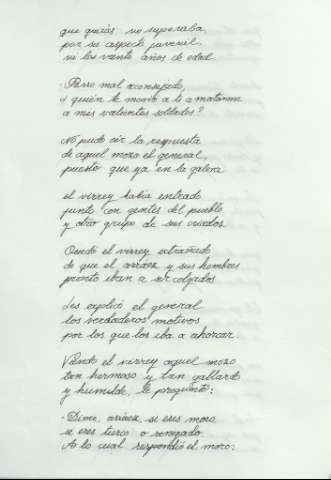 que quizás no superaba,
por su aspecto juvenil,
ni los veinte años de edad.
-Perro mal aconsejado,
¿quién te mandó a ti a matarme
a mis valientes soldados?
No pudo oír la respuesta
de aquel mozo el general,
puesto que ya en la galera
el virrey había entrado
junto con gentes del pueblo
y otro grupo de sus criados.
Quedó el virrey extrañado
de que el arráez y sus hombres
pronto iban a ser colgados
Les explicó el general
los verdaderos motivos
por los que los iba a ahorcar.
Viendo el virrey aquel mozo
tan hermoso y tan gallardo
y humilde, le preguntó:
-Dime, arráez, si eres moro,
si eres turco o renegado.
A lo cual respondió el moro: